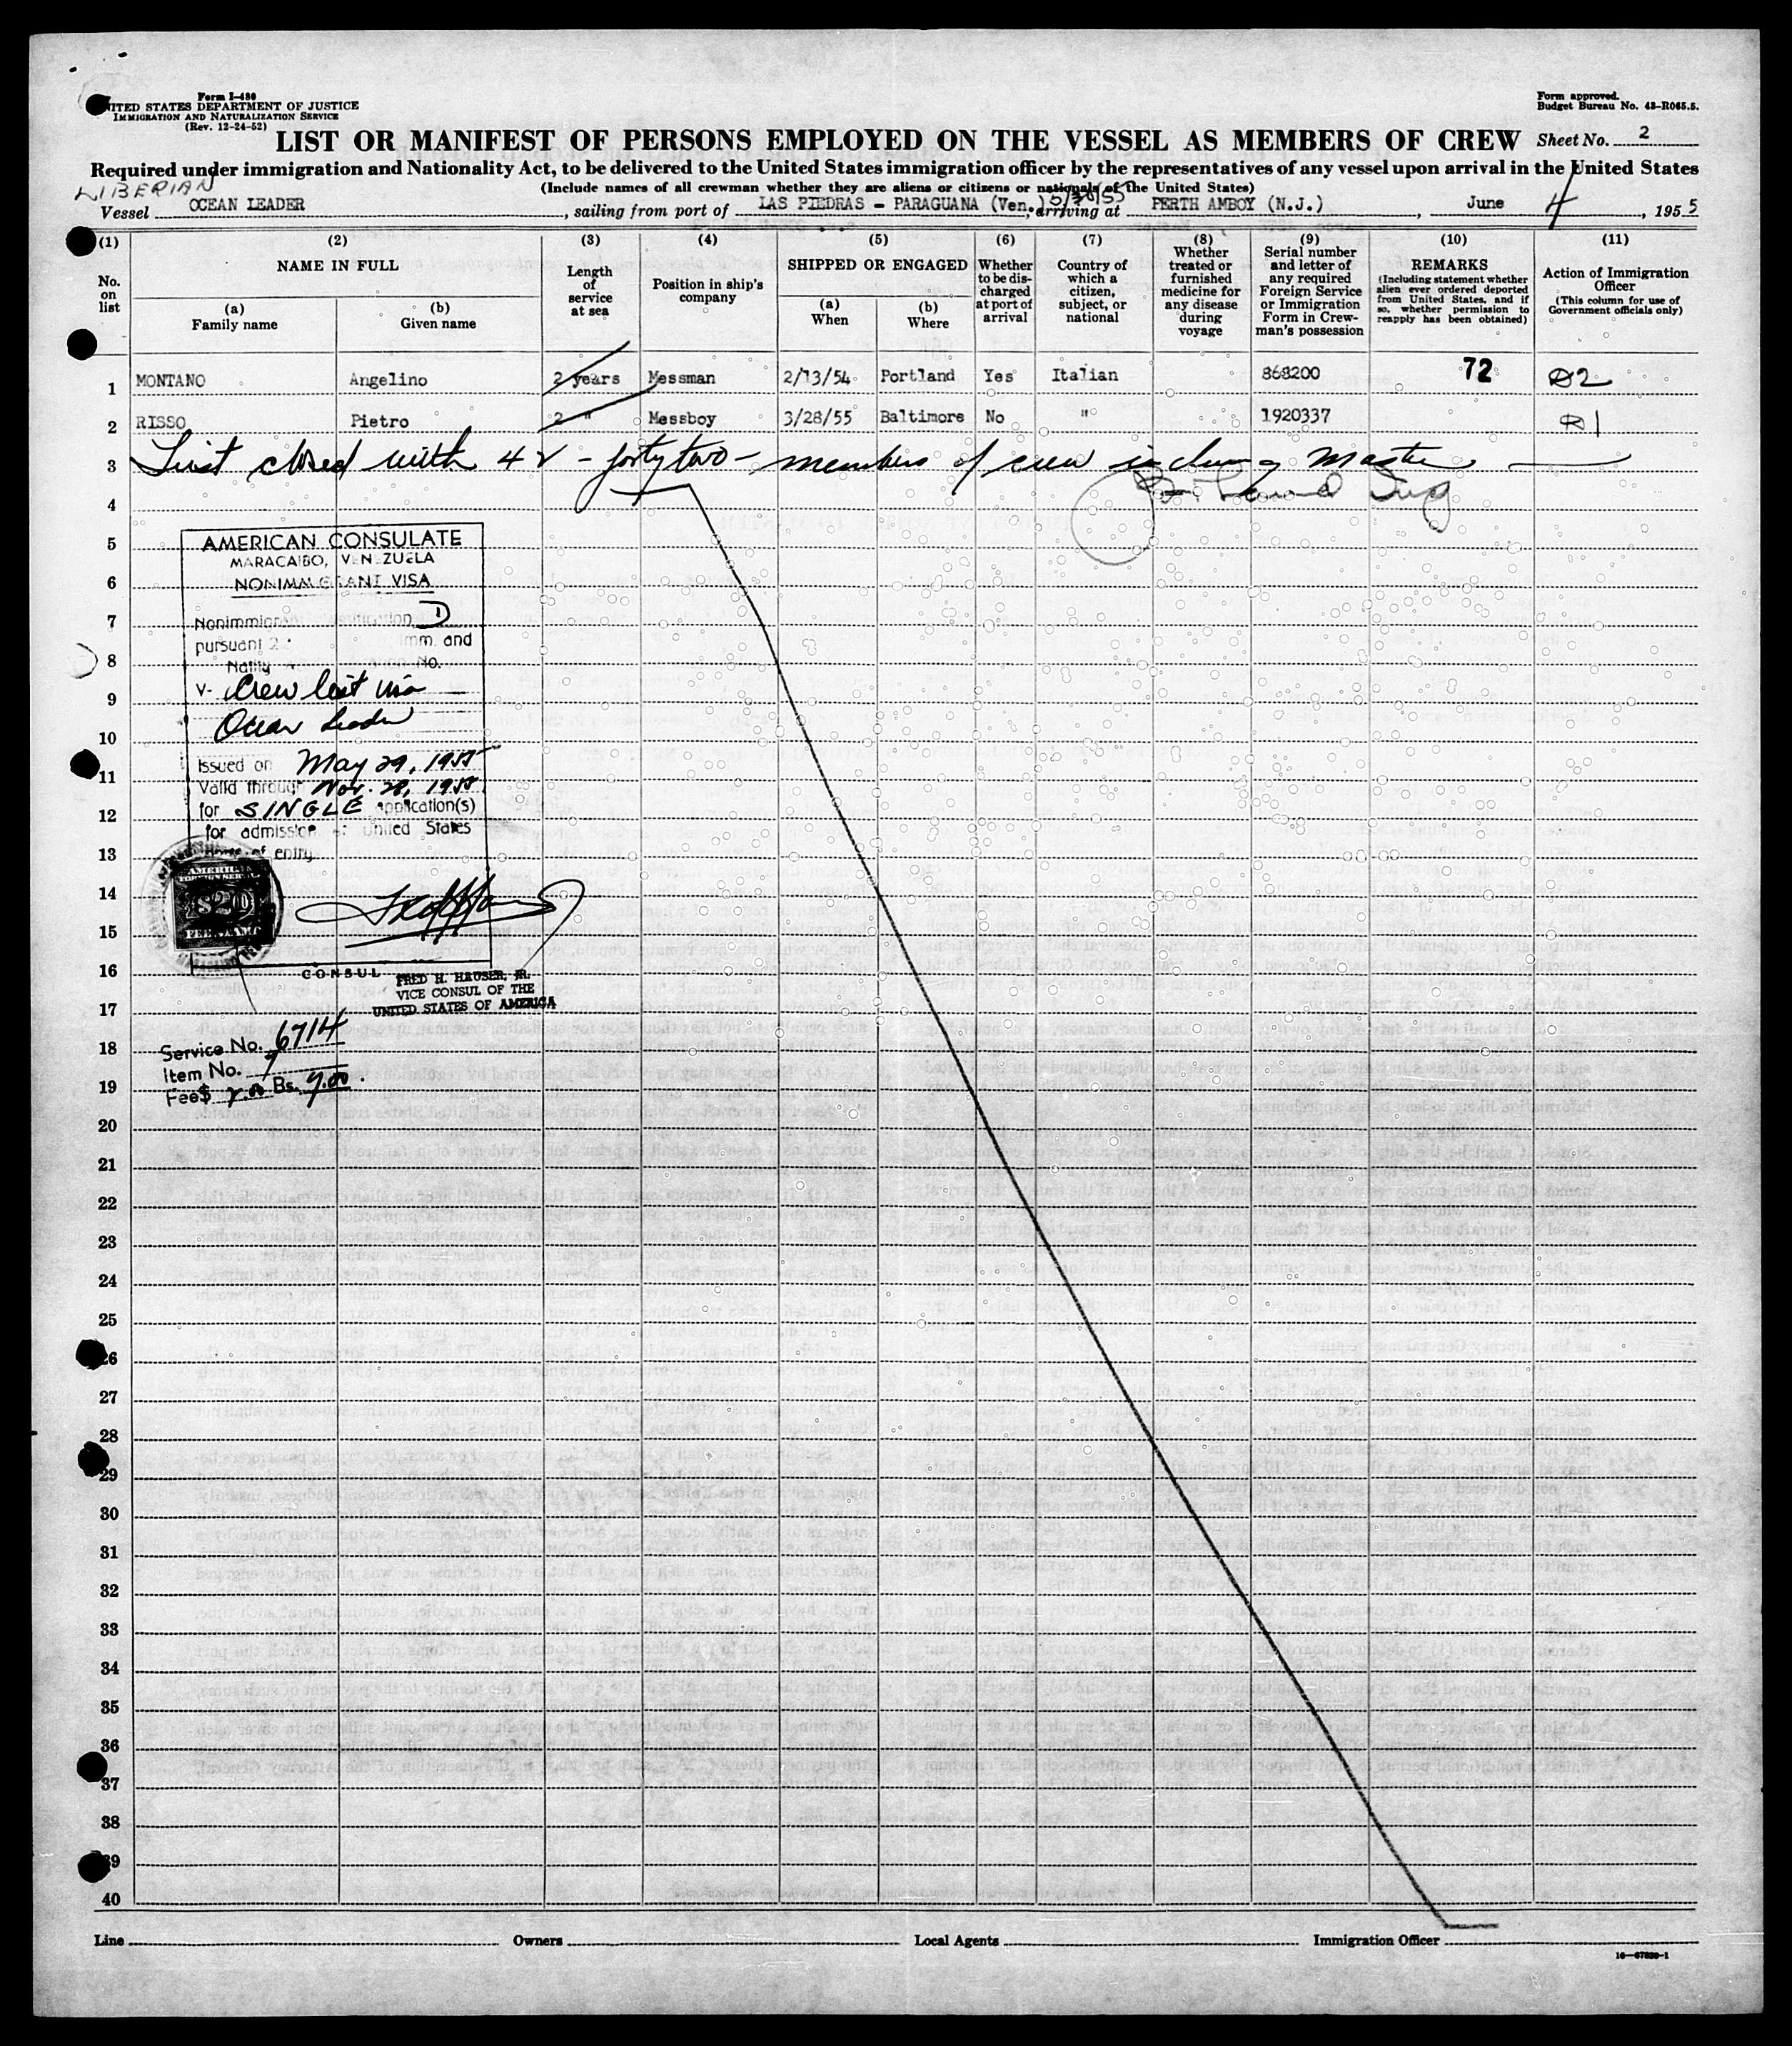 Form I-480
UNITED STATES DEPARTMENT OF JUSTICE
IMMIGRATION AND NATURALIZATION SERVICE
(Rev. 12-24-52)
Form approved.
Budget Bureau No. 43-R065.5.
LIST OR MANIFEST OF PERSONS EMPLOYED ON THE VESSEL AS MEMBERS OF CREW
Sheet No. 2
Required under immigration and Nationality Act, to be delivered to the United States immigration officer by the representatives of any vessel upon arrival in the United States
(Include names of all crewman whether they are aliens or citizens or nationals of the United States)
LIBERIAN
Vessel OCEAN LEADER, sailing from port of LAS PIEDRAS - PARAGUANA (Ven.) 5/30/55, arriving at PERTH AMBOY (N.J.), June 4, 1955
(1) (2) (3) (4) (5) (6) (7) (8) (9) (10) (11)
No. on list
NAME IN FULL
(a) Family name
(b) Given name
Length of service at sea
Position in ship's company
SHIPPED OR ENGAGED
(a) When
(b) Where
Whether to be discharged at port of arrival
Country of which a citizen, subject, or national
Whether treated or furnished medicine for any disease during voyage
Serial number and letter of any required Foreign Service or Immigration Form in Crewman's possession
REMARKS
(Including statement whether alien ever ordered deported from United States, and if so, whether permission to reapply has been obtained)
Action of Immigration Officer
(This column for use of Government officials only)
1 MONTANO Angelino 2 years Messman 2/13/54 Portland Yes Italian 868200 72 D2
2 RISSO Pietro 2 " Messboy 3/28/55 Baltimore No " 1920337 D1
3 List closed with 42 - forty two - members of crew including Master
4
5
6
7
8
9
10
11
12
13
14
15
16
17
18
19
20
21
22
23
24
25
26
27
28
29
30
31
32
33
34
35
36
37
38
39
40
AMERICAN CONSULATE
MARACAIBO, VENEZUELA
NONIMMIGRANT VISA
Nonimmigrant classification D
pursuant imm. and
Natlty No.
V- Crew list visa
Ocean Leader
Issued on May 29, 1955
Valid through Nov. 28, 1955
for SINGLE application(s)
for admission United States
of entry
AMERICAN
FOREIGN SERVICE
$2.00
FEE STAMP
CONSUL
FRED H. HAUSER, JR.
VICE CONSUL OF THE
UNITED STATES OF AMERICA
Service No. 6714
Item No. 7
Fee$ 2.00 Bs. 7.00.
Line Owners Local Agents Immigration Officer